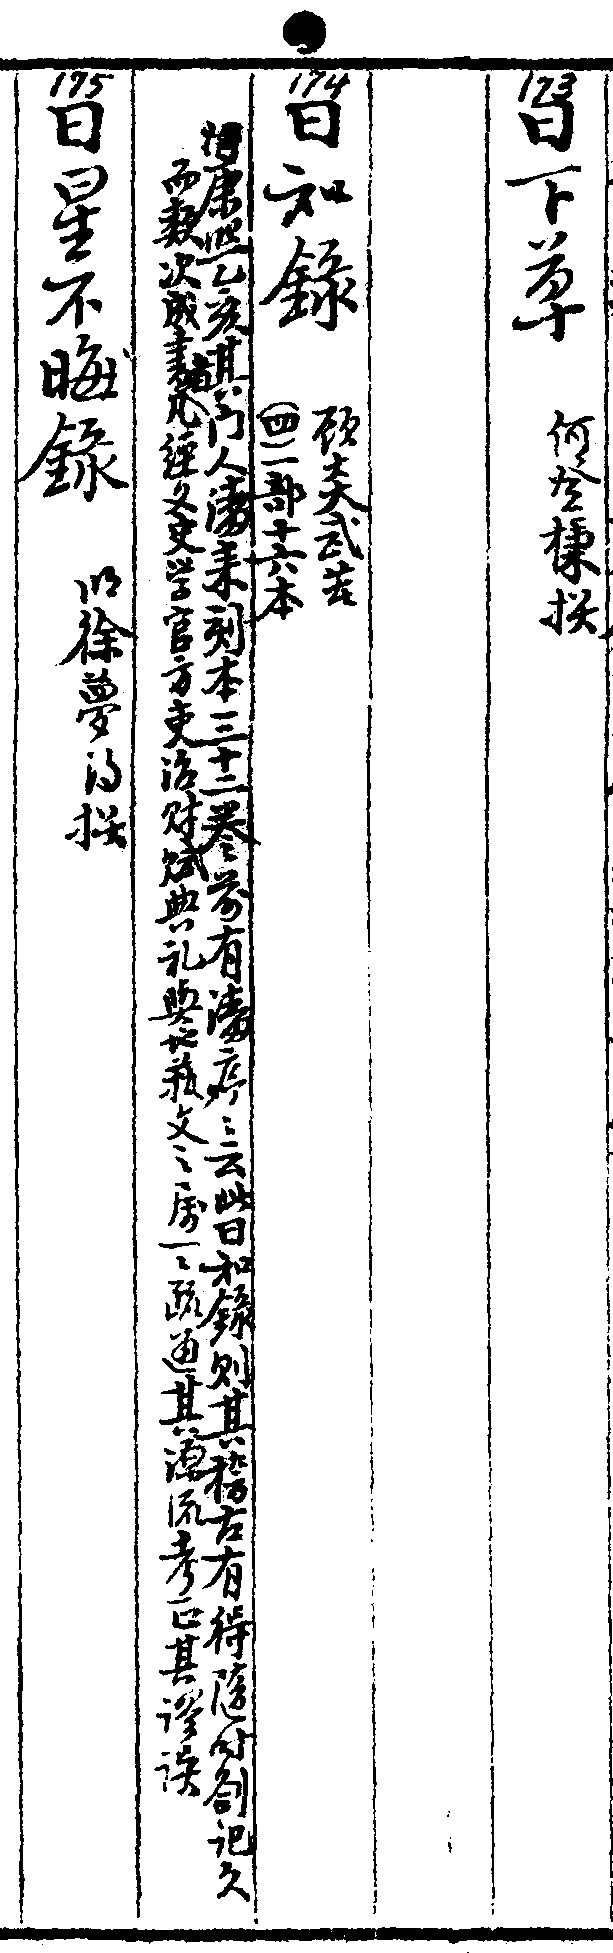 173
日下草
何登棟撰
174
日知錄
顾炎武著
(四)二部十六本
清康熙乙亥其門人潘耒刻本三十二卷前有潘序序云此日知錄則其稽古有得隨时劄記久
而類次成書者凡經义史学官方吏治财赋典礼輿地藝文之属一一疏通其源流考正其謬误
175
日星不晦錄
明徐夢得撰